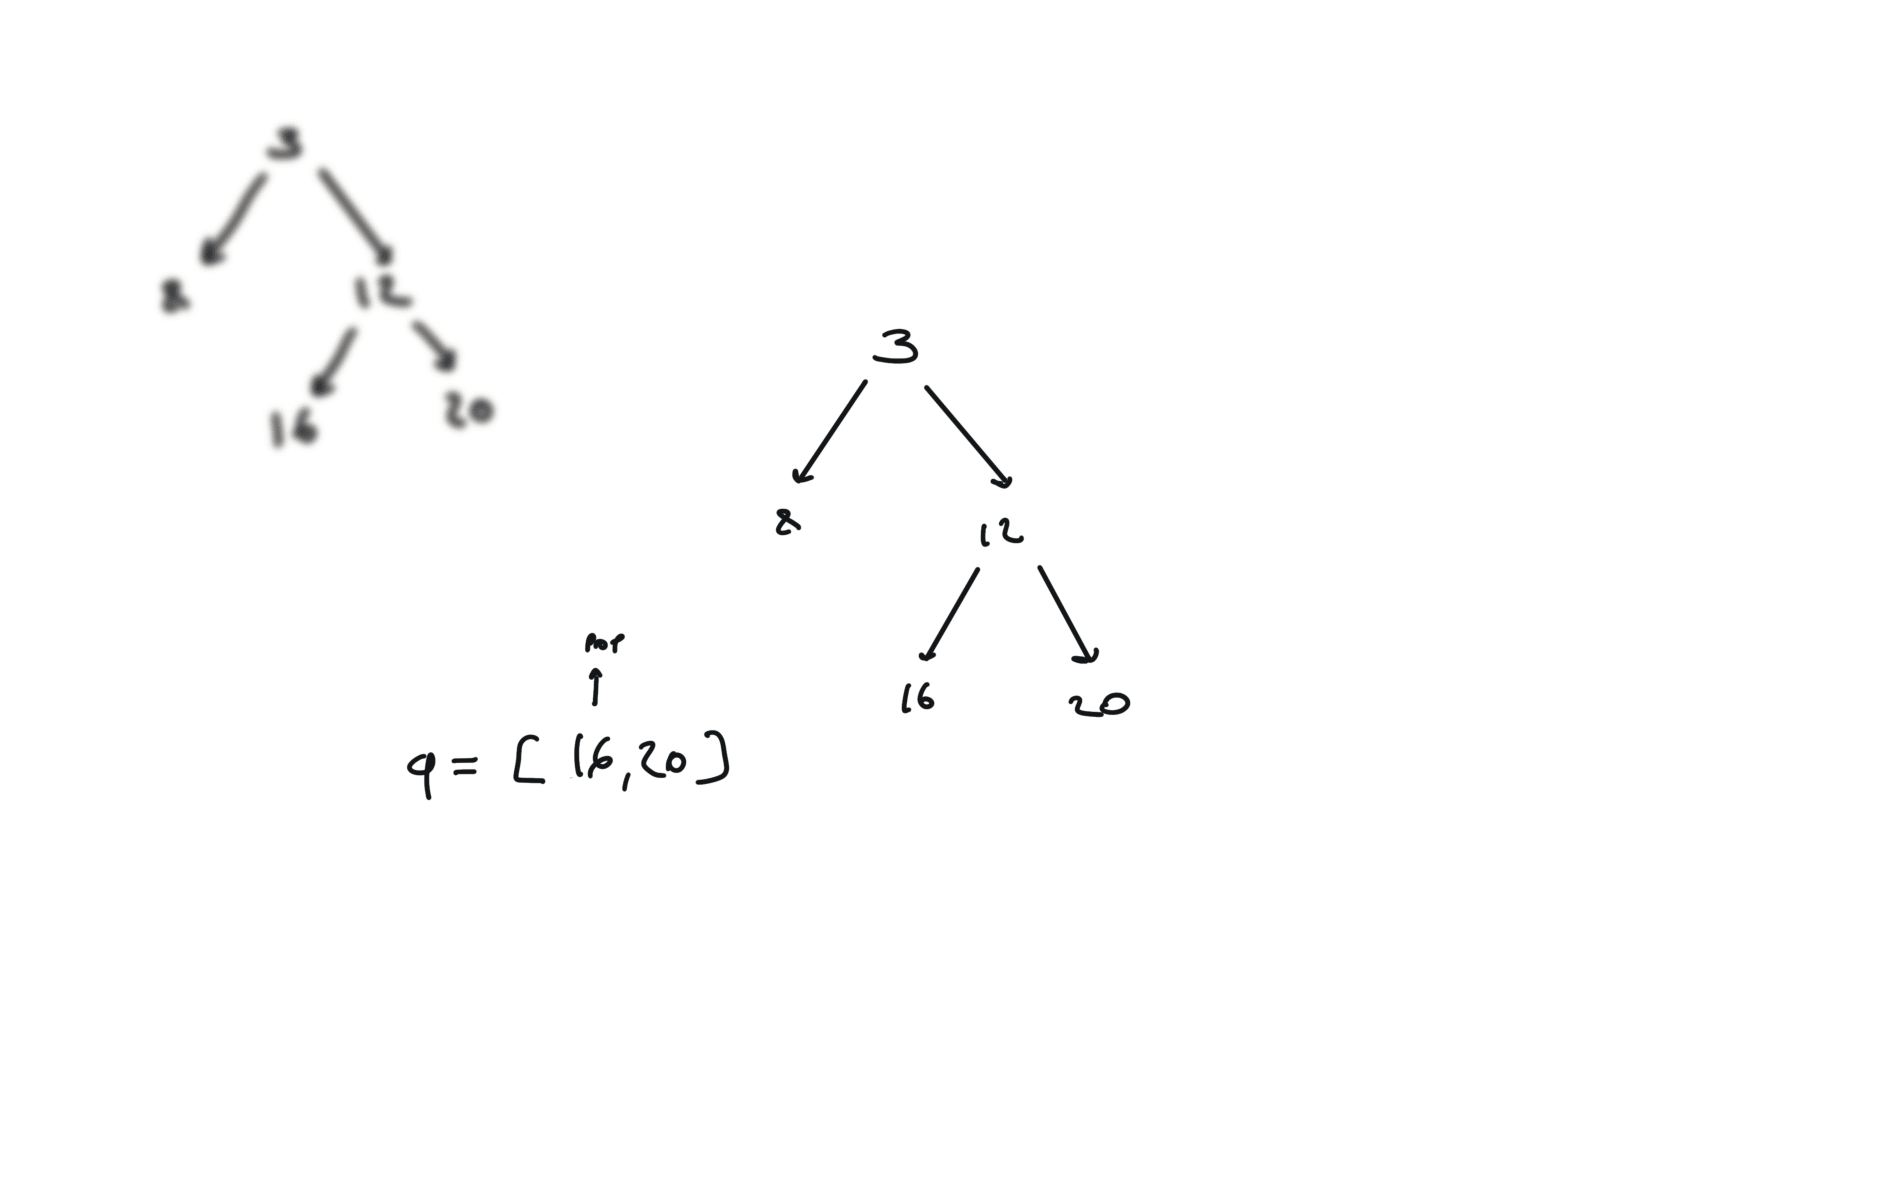 3
8 12
16 20
3
8 12
16 20
POP
q = [ 16, 20 ]